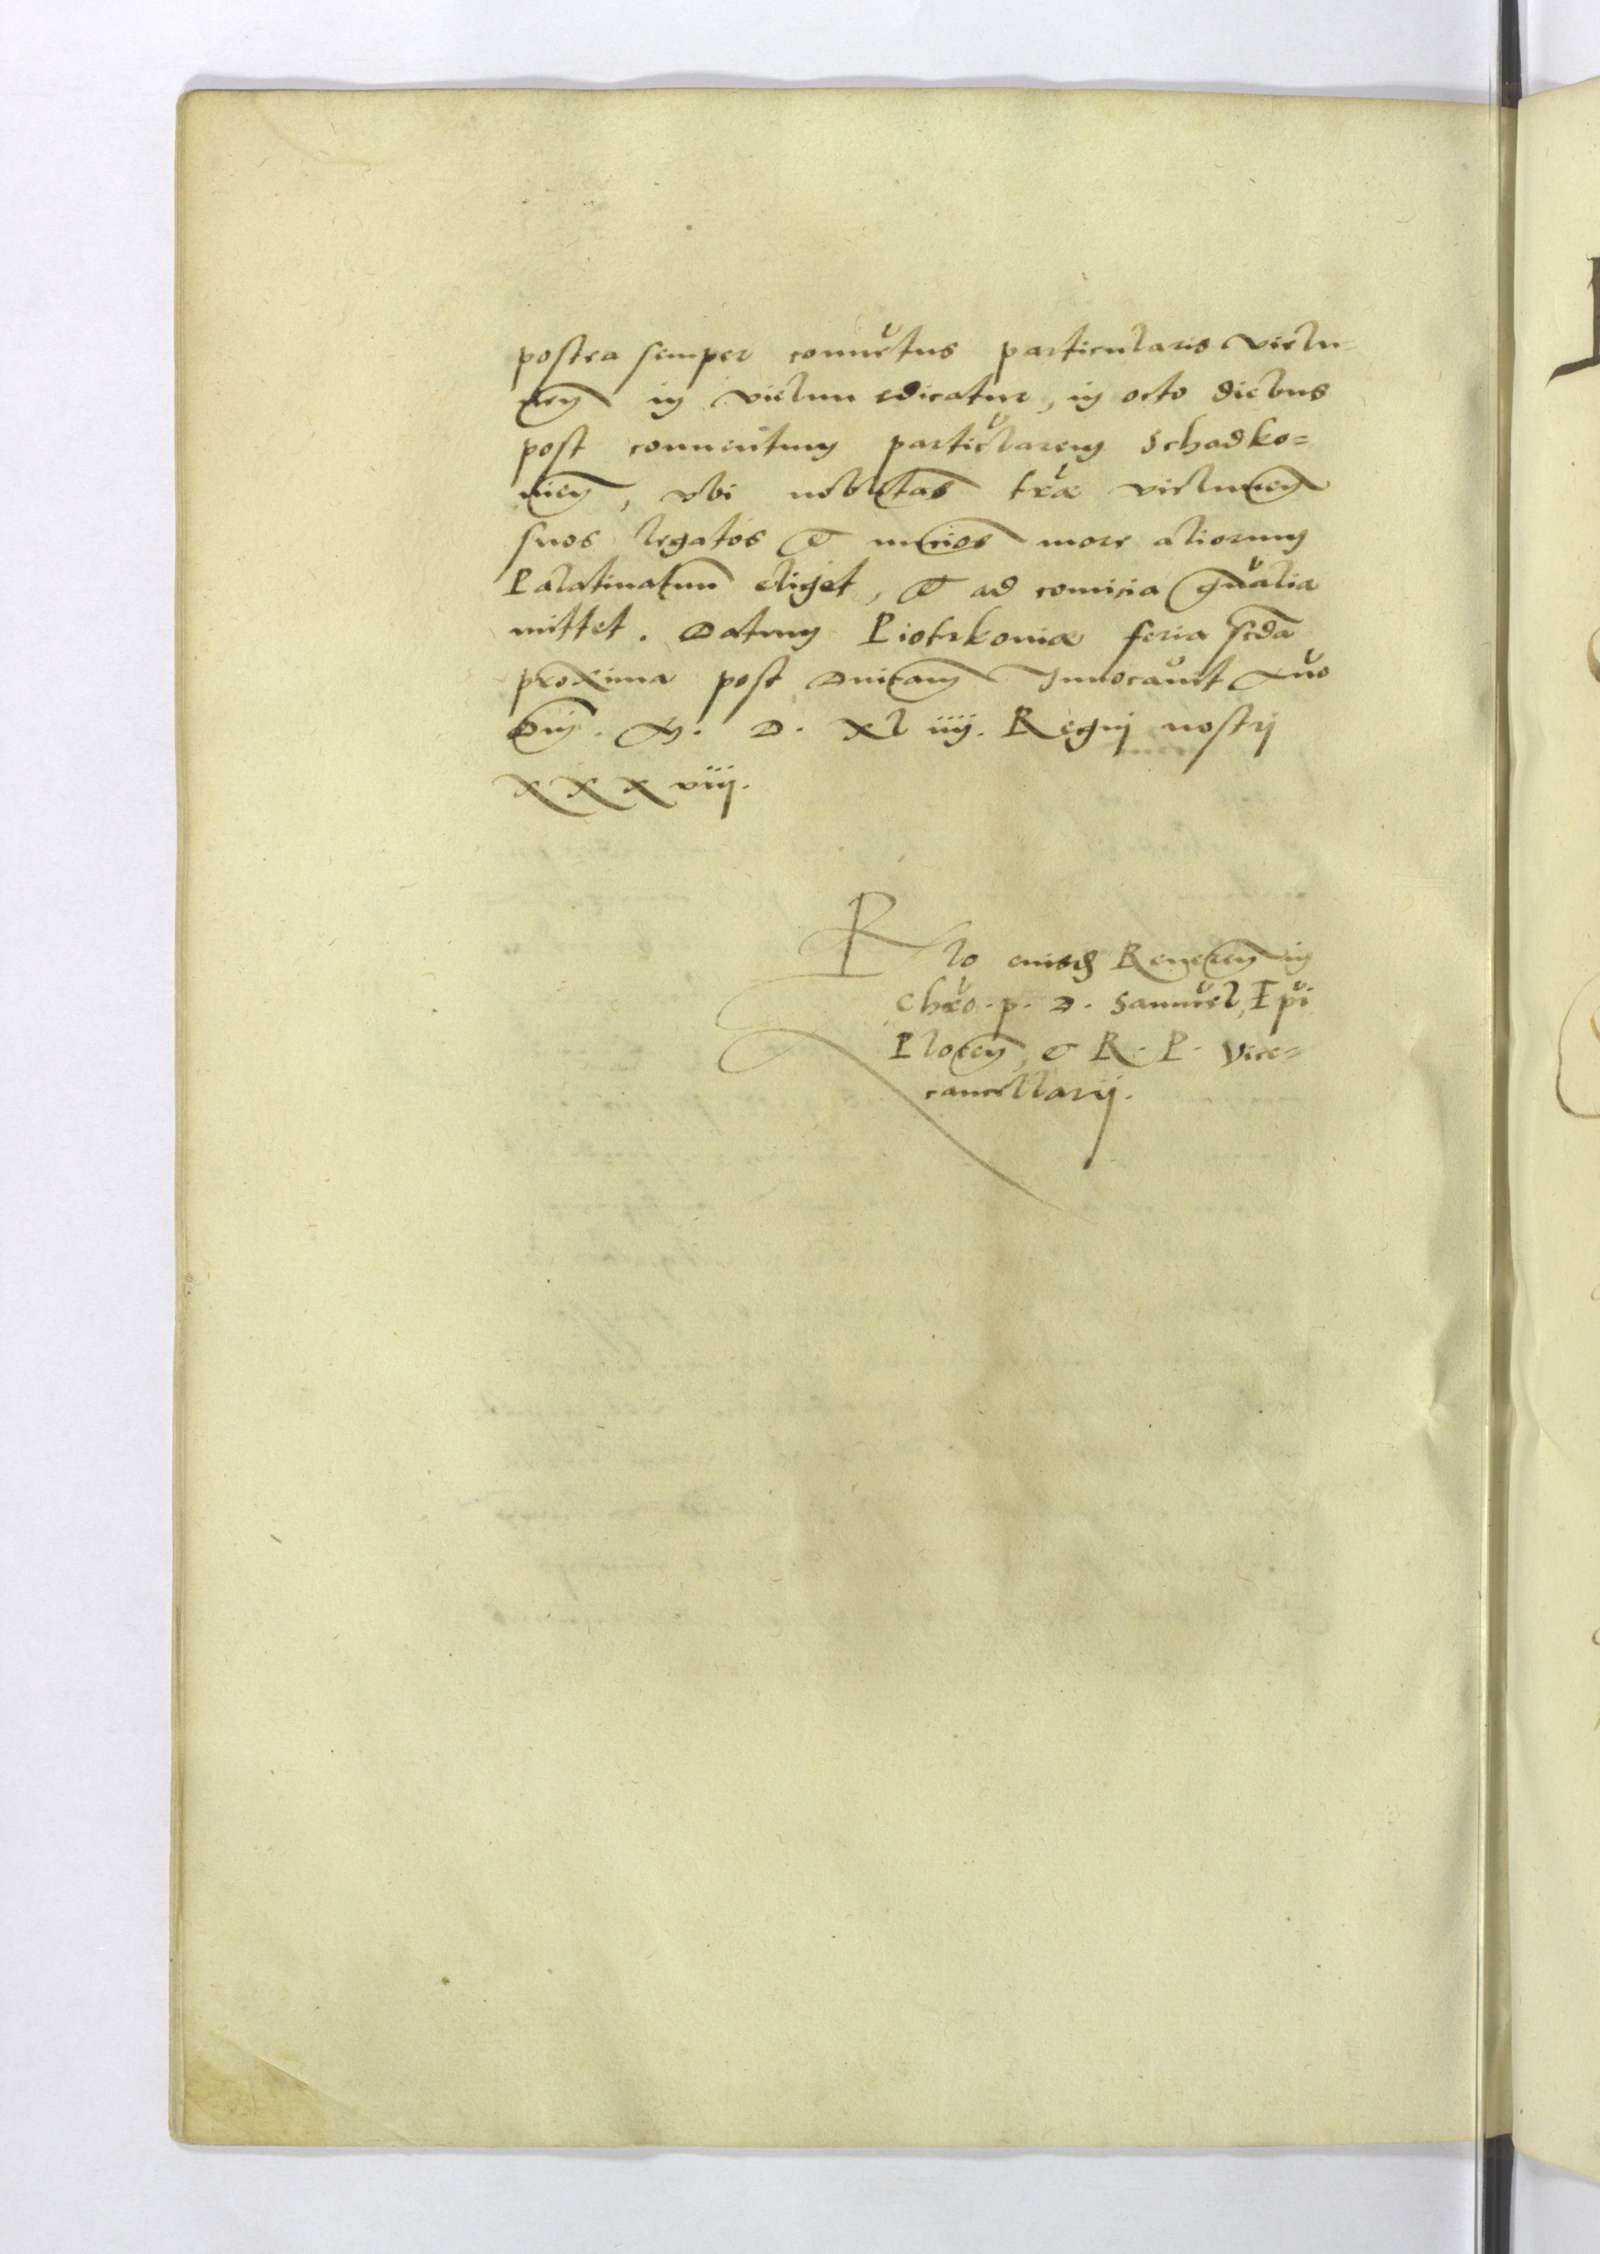 postea semper conuẽtus particularis vielu-
neñ in vielun edicatur, in octo diebus
post conuentum particlarem Schadko=
nieñ, vbi nobilitas trae vieluneñ
suos legatos & nũcios more aliorum
Palatinatuum eliget, & ad comicia gnalia
mittet. Datum Piotrkoniæ feria scda
proxima post Dnicam Innocauit Ano
Dnj. M. D. xl iiij. Regnj nostrj
xxx viij.
Rlo eiusd Reueren in
Chro. p. D. Samuel, Epi
Ploceñ, & R. P. Vice=
cancellarij.